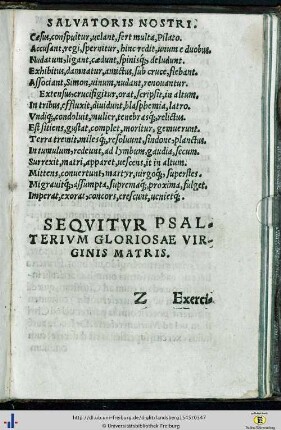 SALVATORIS NOSTRI.
Cæsus, conspuitur, uelant, fert multa, Pilato.
Accusant, regi, spernitur, hinc redit, unum e duobus.
Nudatum, ligant, cædunt, spinisq́; deludunt.
Exhibitus, damnatur, amictus, sub cruce, flebant.
Associant, Simon, uinum, nudant, renouantur.
Extensus, crucifigitur, orat, scripsit, in altum.
In tribus, effluxit, diuidunt, blasphemia, latro.
Vndiq́; condoluit, mulier, tenebrasq́; relictus.
Est sitiens, gustat, complet, moritur, gemuerunt.
Terra tremit, milesq́; resoluunt, sindone, planctus.
In tumulum, redeunt, ad lymbum, gaudia, secum.
Surrexit, matri, apparet, uescens, it in altum.
Mittens, conuertunt, martyr, uirgoq́; superstes.
Migrauitq́; assumpta, supremaq́; proxima, fulget.
Imperat, exorat, concors, crescut, ueniet q́;.
SEQVITVR PSAL-
TERIVM GLORIOSAE VIR-
GINIS MATRIS.
Z Exerci-
© Universitätsbibliothek Freiburg